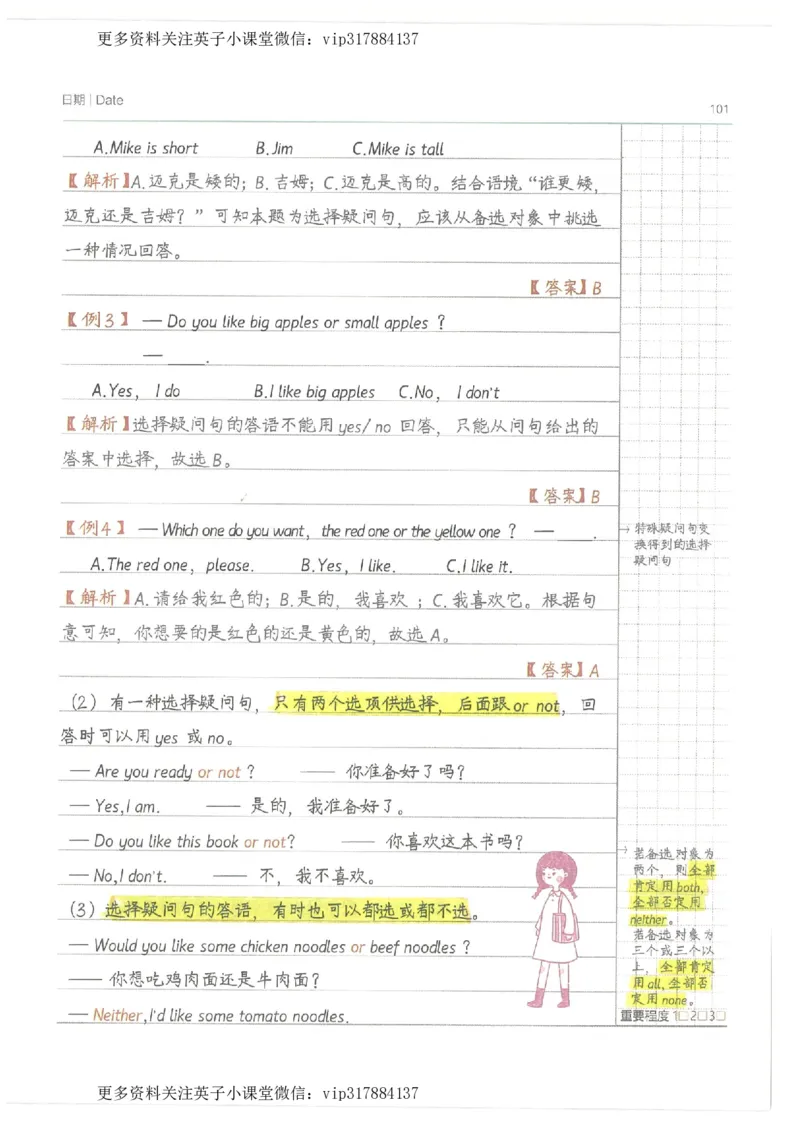 更多资料关注英子小课堂微信：vip317884137
日期 | Date
101
A.Mike is short B.Jim C.Mike is tall
【解析】A.迈克是矮的；B.吉姆；C.迈克是高的。结合语境“谁更矮，
迈克还是吉姆？”可知本题为选择疑问句，应该从备选对象中挑选
一种情况回答。
【答案】B
【例3】 — Do you like big apples or small apples ?
— ____.
A.Yes， I do B.I like big apples C.No， I don't
【解析】选择疑问句的答语不能用 yes/ no 回答，只能从问句给出的
答案中选择，故选 B。
【答案】B
【例4】 — Which one do you want，the red one or the yellow one ? — ____.
→ 特殊疑问句变
换得到的选择
疑问句
A.The red one，please. B.Yes，I like. C.I like it.
【解析】A.请给我红色的；B.是的，我喜欢 ；C.我喜欢它。根据句
意可知，你想要的是红色的还是黄色的，故选 A。
【答案】A
（2）有一种选择疑问句，只有两个选项供选择，后面跟 or not，回
答时可以用 yes 或 no。
— Are you ready or not ? —— 你准备好了吗？
— Yes,I am. —— 是的，我准备好了。
— Do you like this book or not? —— 你喜欢这本书吗？
— No,I don't. —— 不，我不喜欢。
（3）选择疑问句的答语，有时也可以都选或都不选。
— Would you like some chicken noodles or beef noodles ?
—— 你想吃鸡肉面还是牛肉面？
— Neither,I'd like some tomato noodles.
→ 若备选对象为
两个，则全部
肯定用 both,
全部否定用
neither。
若备选对象为
三个或三个以
上，全部肯定
用 all,全部否
定用 none。
重要程度 1□2□3□
更多资料关注英子小课堂微信：vip317884137